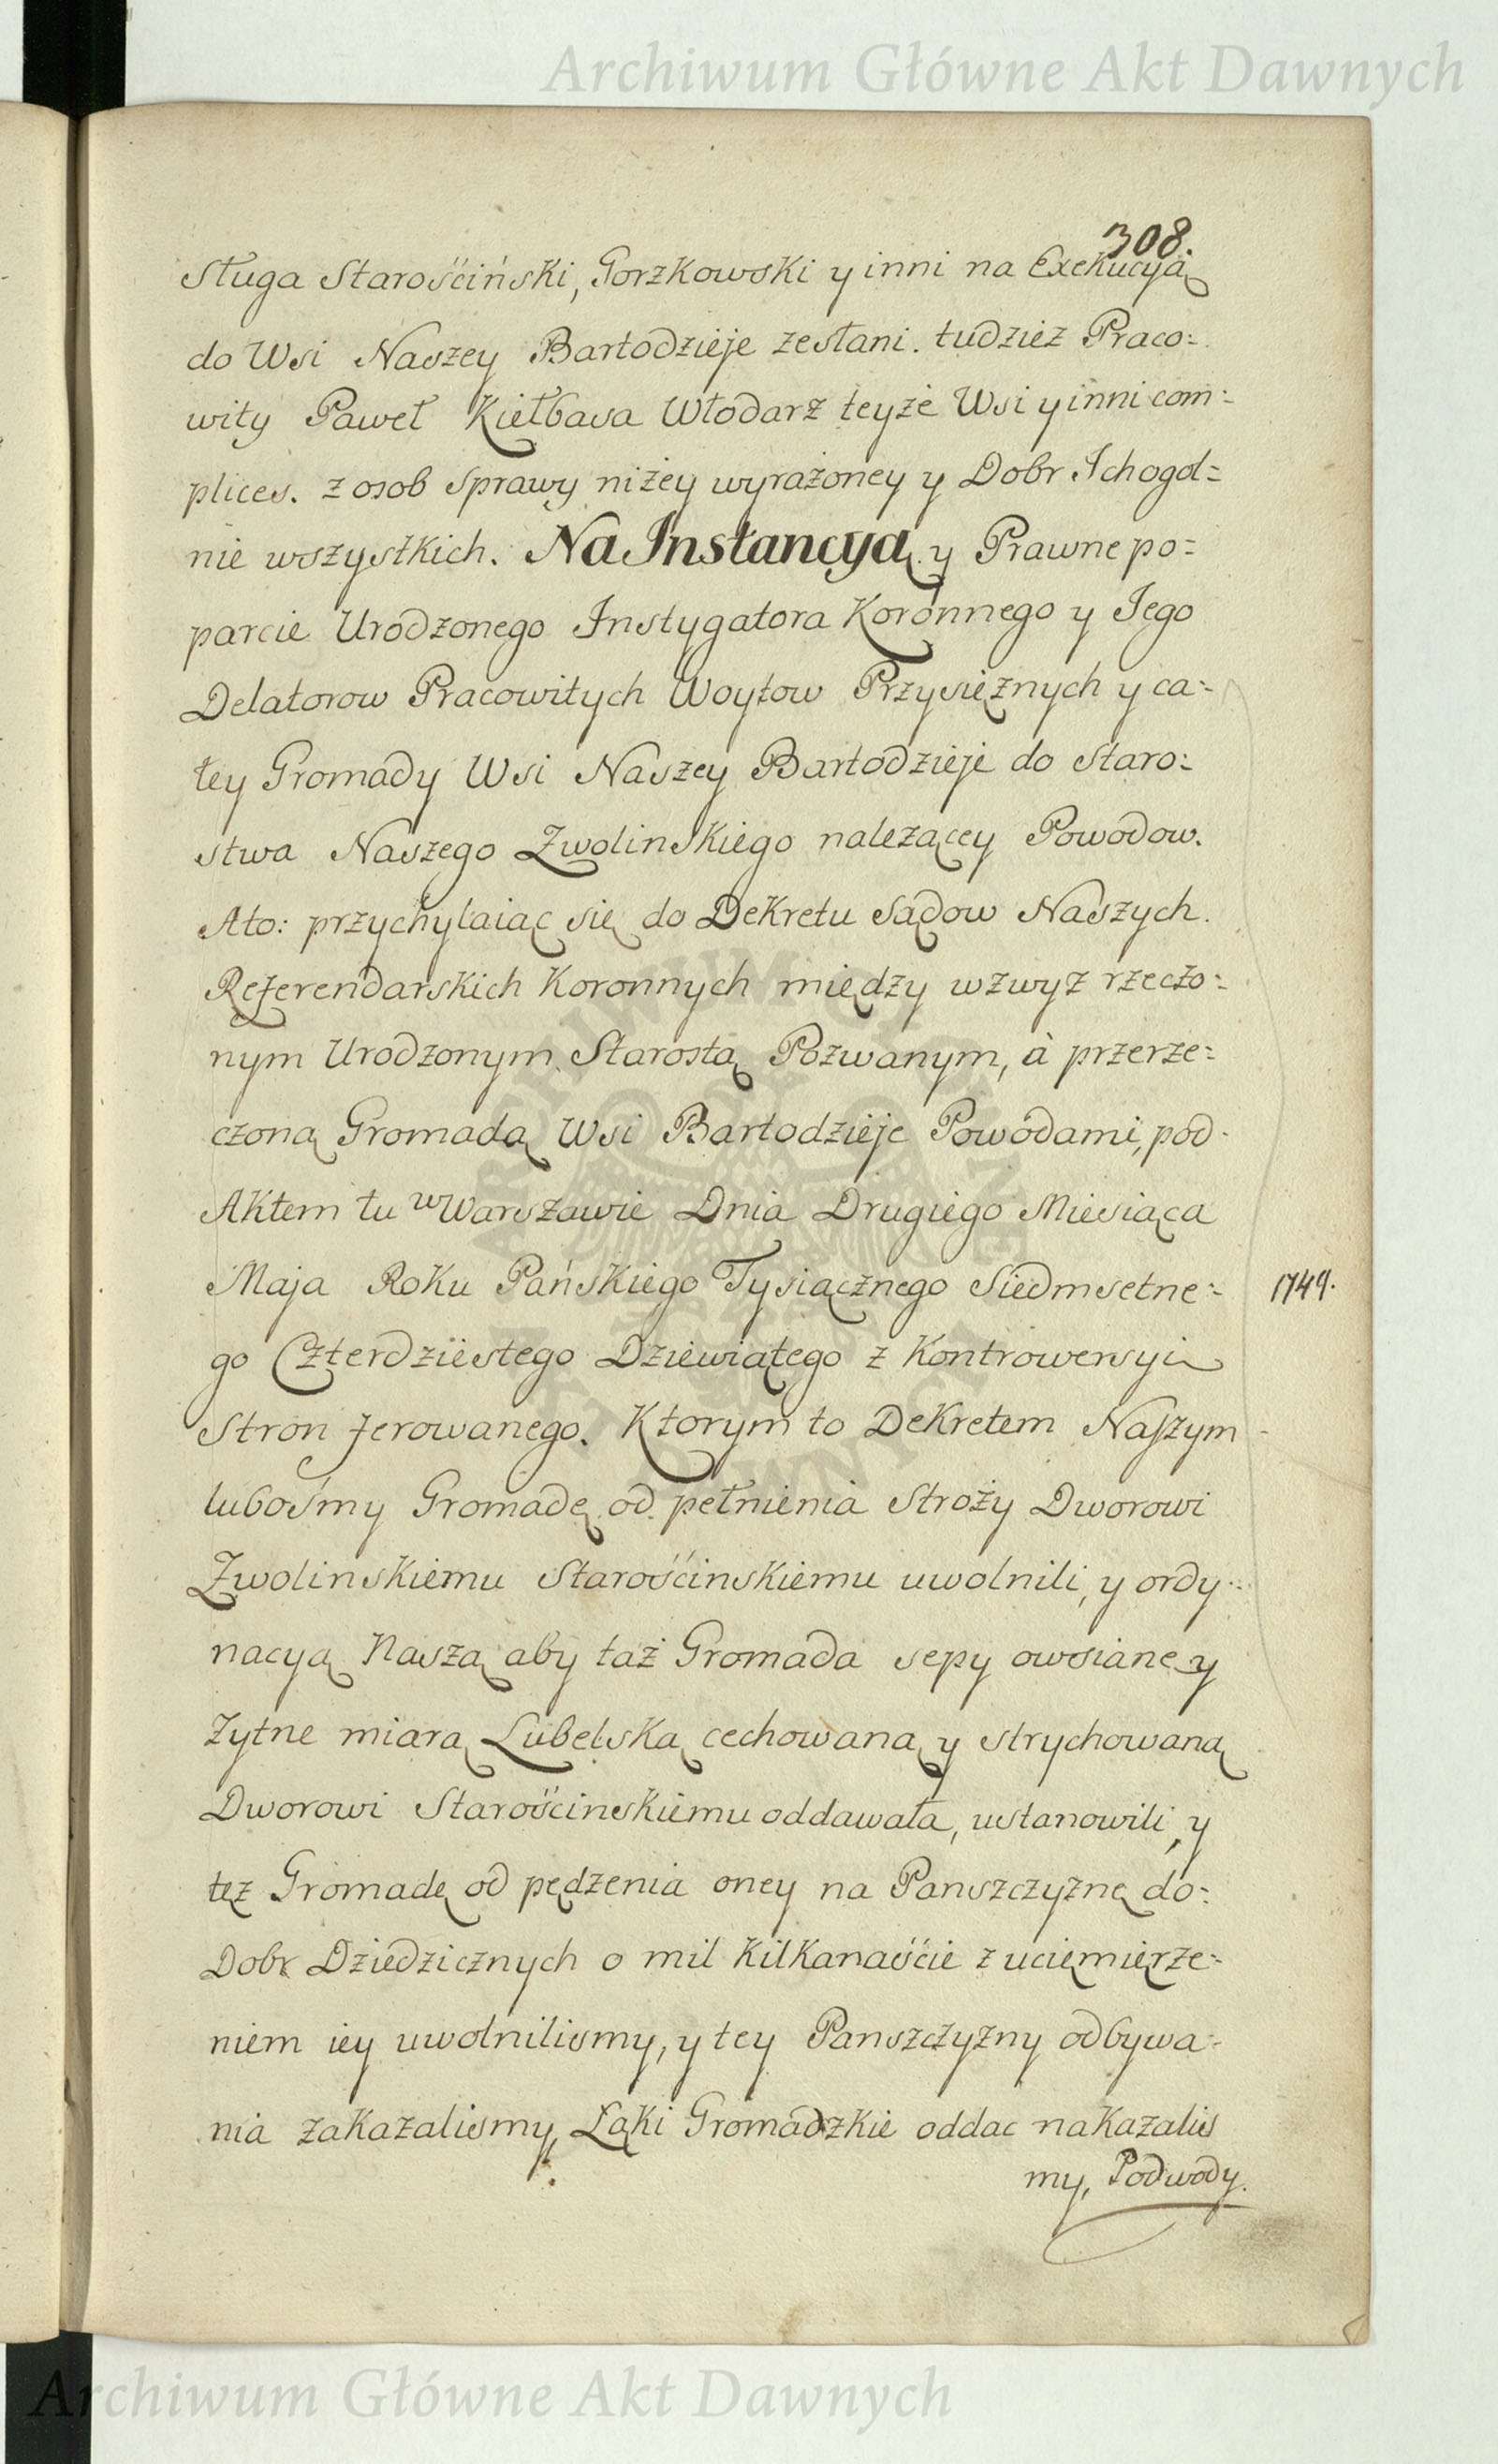 Archiwum Główne Akt Dawnych
308.
Sługa Starościński, Gorzkowski y inni na Exekucyą
do Wsi Naszey Bartodzieje zesłani. tudziez Praco:
wity Paweł Kiełbasa Włodarz teyże Wsi y inni com:
plices. z osob sprawy niżey wyrażoney y Dobr Ichogol:
nie wszystkich. Na Instancyą y Prawne po:
parcie Urodzonego Instygatora Koronnego y Jego
Delatorow Pracowitych Woytow Przysiężnych y ca:
łey Gromady Wsi Naszey Bartodzieje do Staro:
stwa Naszego Zwolinskiego nalezącey Powodow.
Ato: przychylaiąc się do Dekretu Sądow Naszych
Referendarskich Koronnych między wzwyż rzeczo:
nym Urodzonym Starostą Pozwanym, à przerze:
czoną Gromadą Wsi Bartodzieje Powodami, pod
Aktem tu w Warszawie Dnia Drugiego Miesiąca
Maja Roku Pańskiego Tysiącznego Siedmsetne: 1749.
go Czterdziestego Dziewiątego z Kontrowersyi
Stron ferowanego. Ktorym to Dekretem Naszym
lubośmy Gromadę od pełnienia Stroży Dworowi
Zwolinskiemu Starościnskiemu uwolnili, y ordy:
nacyą Naszą aby taż Gromada sepy owsiane y
żytne miarą Lubelską cechowaną y strychowaną
Dworowi Starościnskiemu oddawała, ustanowili, y
też Gromadę od pędzenia oney na Panszczyznę do:
Dobr Dziedzicznych o mil kilkanaście z uciemięże:
niem iey uwolnilismy, y tey Panszczyzny odbywa:
nia zakazalismy, Łąki Gromadzkie oddac nakazalis
my, Podwody.
Archiwum Główne Akt Dawnych